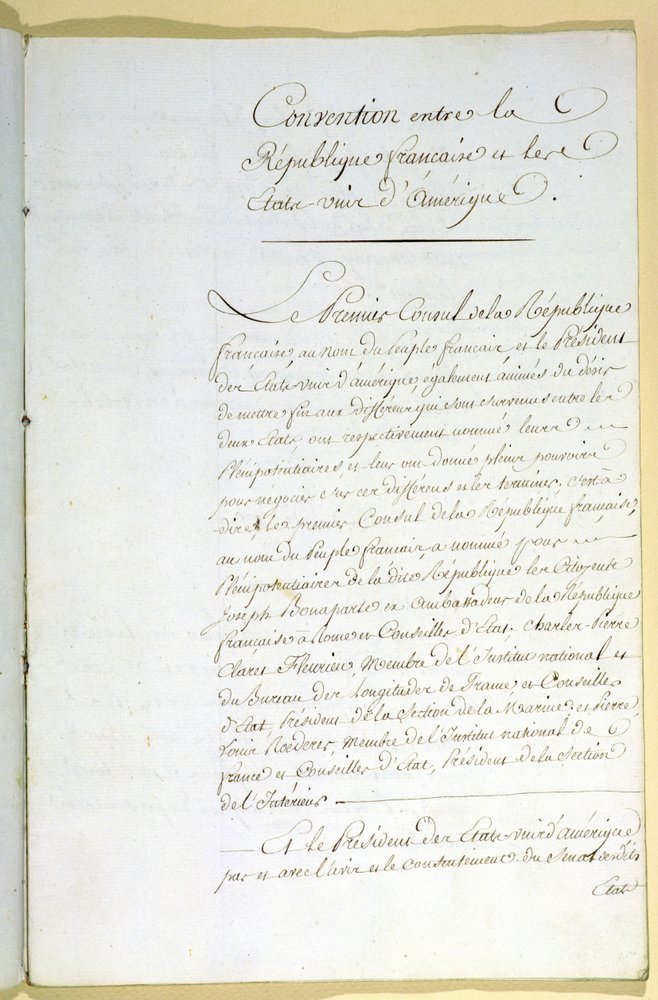 Convention entre la
République française et les
Etats-unis d'Amérique.
Le Premier Consul de la République
française, au nom du Peuple français, et le Président
des Etats-unis d'amérique, également animés du désir
de mettre fin aux différens qui sont survenus entre les
deux Etats, ont respectivement nommé leurs
Plénipotentiaires, et leur ont donné pleins pouvoirs
pour négocier sur ces différens et les terminer. c'est à
dire, le premier Consul de la République française,
au nom du Peuple français, a nommé pour
Plénipotentiaires de la dite République les Citoyens
Joseph Bonaparte ex Ambassadeur de la République
française à Rome et Conseiller d'Etat; Charles-Pierre
Claret Fleurieu, Membre de l'Institut national et
du Bureau des Longitudes de France, et Conseiller
d'Etat, Président de la Section de la Marine, et Pierre
Louis Rœderer, Membre de l'Institut national de
france et Conseiller d'Etat, Président de la Section
de l'Intérieur
Et le Président des Etats-unis d'amérique
par et avec l'avis et le consentement du Senat desdits
Etats